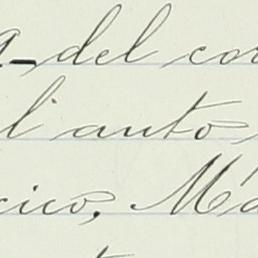 del co
l auto
xico, Ma